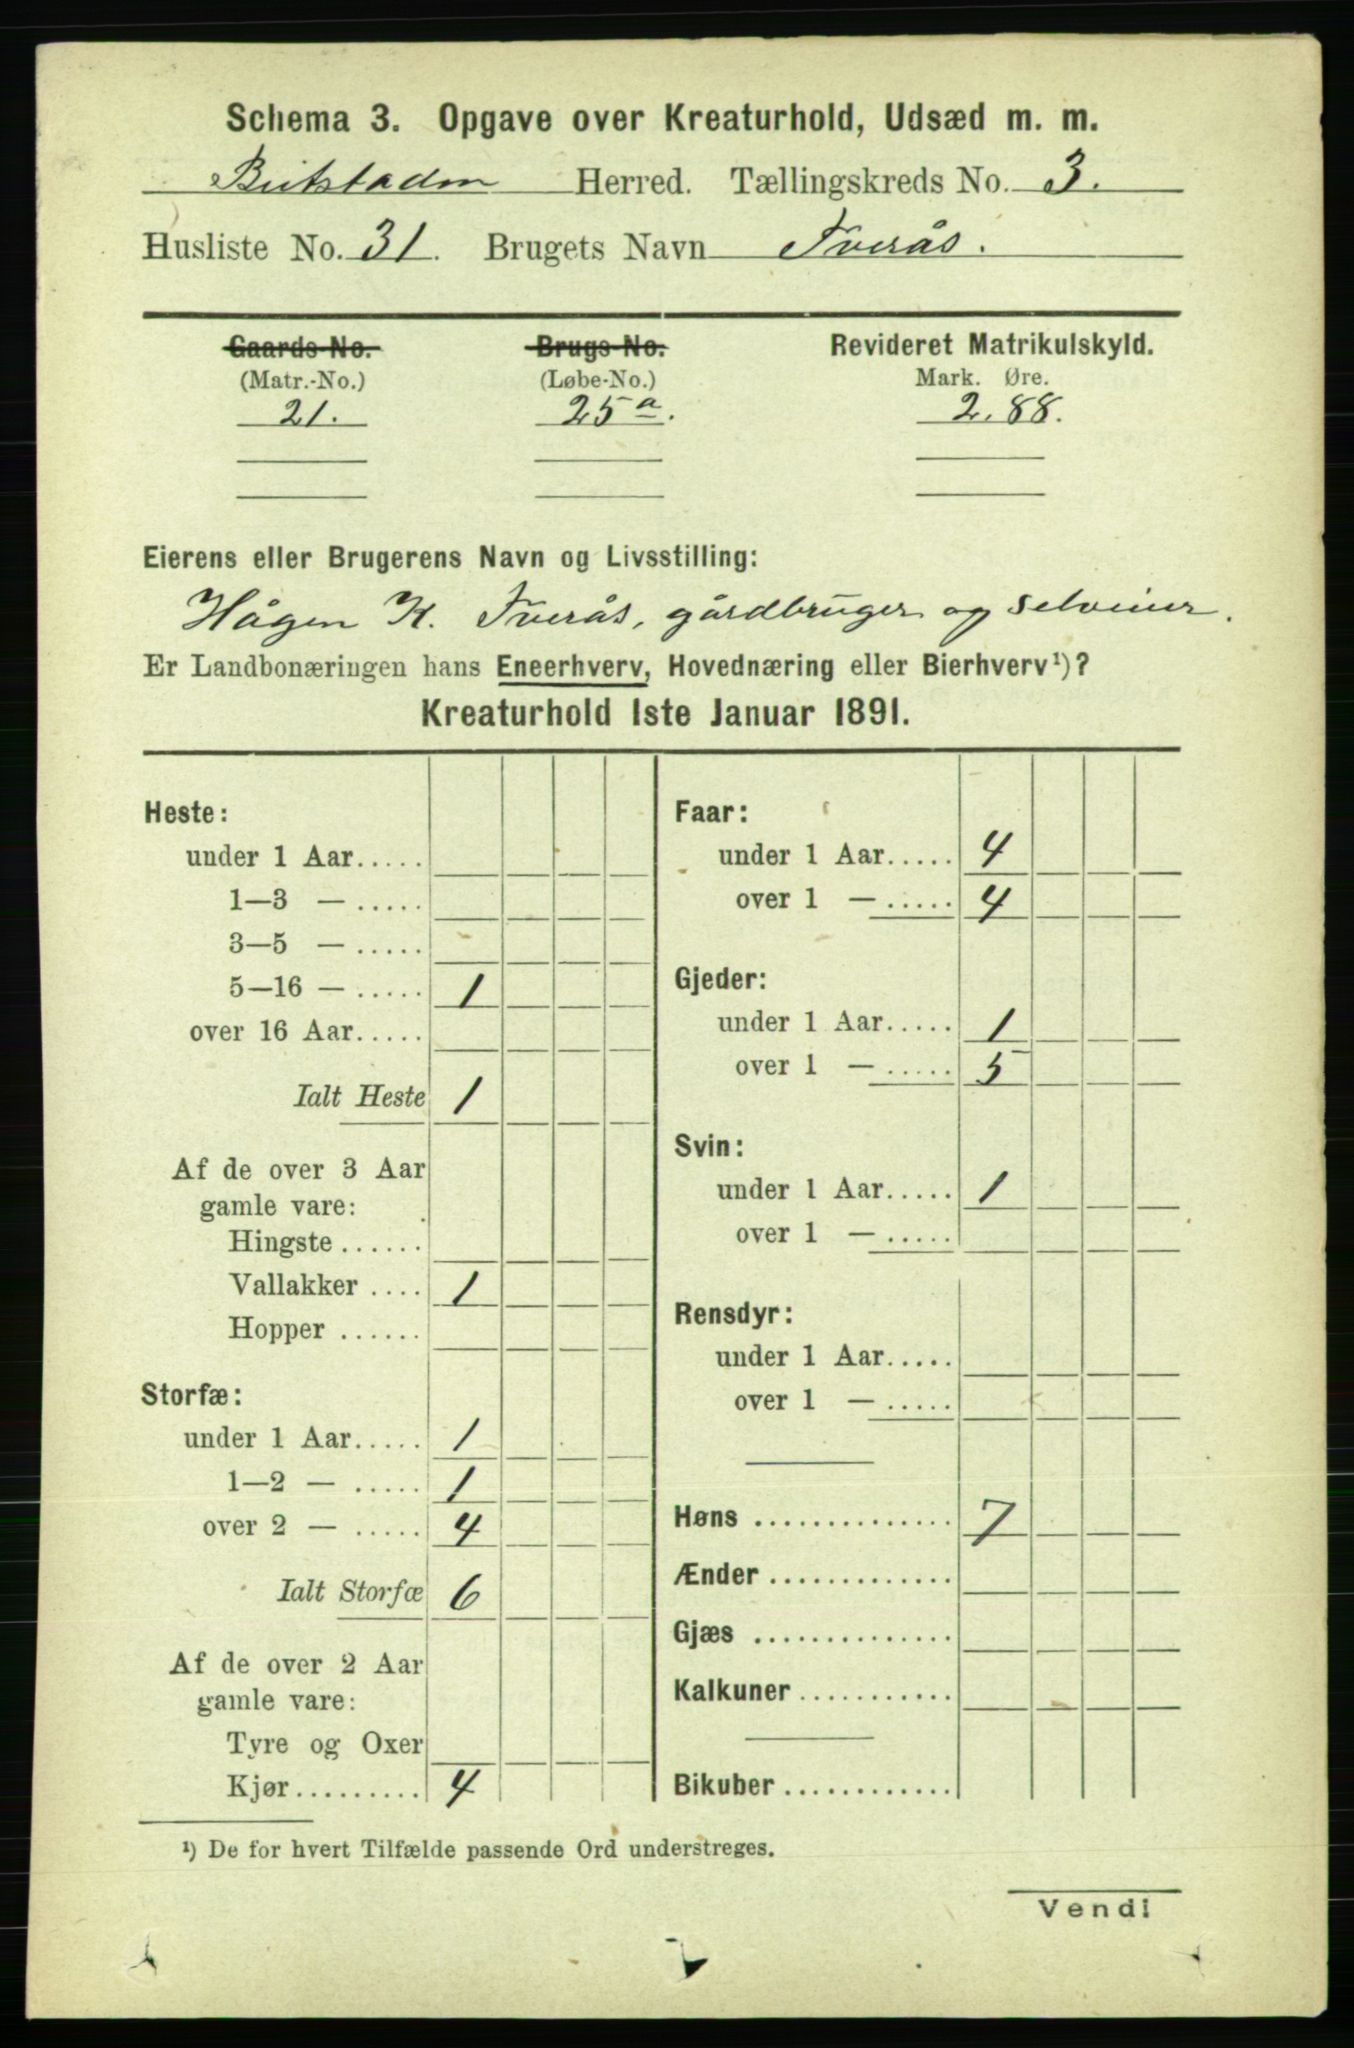 Schema 3. Opgave over Kreaturhold, Udsæd m. m.
Beitstaden Herred. Tællingskreds No. 3.
Husliste No. 31. Brugets Navn Tverås.
Gaards-No. Brugs-No. Revideret Matrikulskyld.
(Matr.-No.) (Løbe-No.) Mark. Øre.
21. 25a. 2.88.
Eierens eller Brugerens Navn og Livsstilling:
Hågen K. Tverås, gårdbruger og selveier.
Er Landbonæringen hans Eneerhverv, Hovednæring eller Bierhverv¹)?
Kreaturhold 1ste Januar 1891.
Heste:
under 1 Aar.....
1—3 — .....
3—5 — .....
5—16 — ..... 1
over 16 Aar.....
Ialt Heste 1
Af de over 3 Aar
gamle vare:
Hingste ......
Vallakker .... 1
Hopper ......
Storfæ:
under 1 Aar..... 1
1—2 — ..... 1
over 2 — ..... 4
Ialt Storfæ 6
Af de over 2 Aar
gamle vare:
Tyre og Oxer
Kjør......... 4
Faar:
under 1 Aar..... 4
over 1 — ..... 4
Gjeder:
under 1 Aar..... 1
over 1 — ..... 5
Svin:
under 1 Aar..... 1
over 1 — .....
Rensdyr:
under 1 Aar.....
over 1 — .....
Høns .............. 7
Ænder .............
Gjæs ..............
Kalkuner ...........
Bikuber .............
¹) De for hvert Tilfælde passende Ord understreges.
Vend!